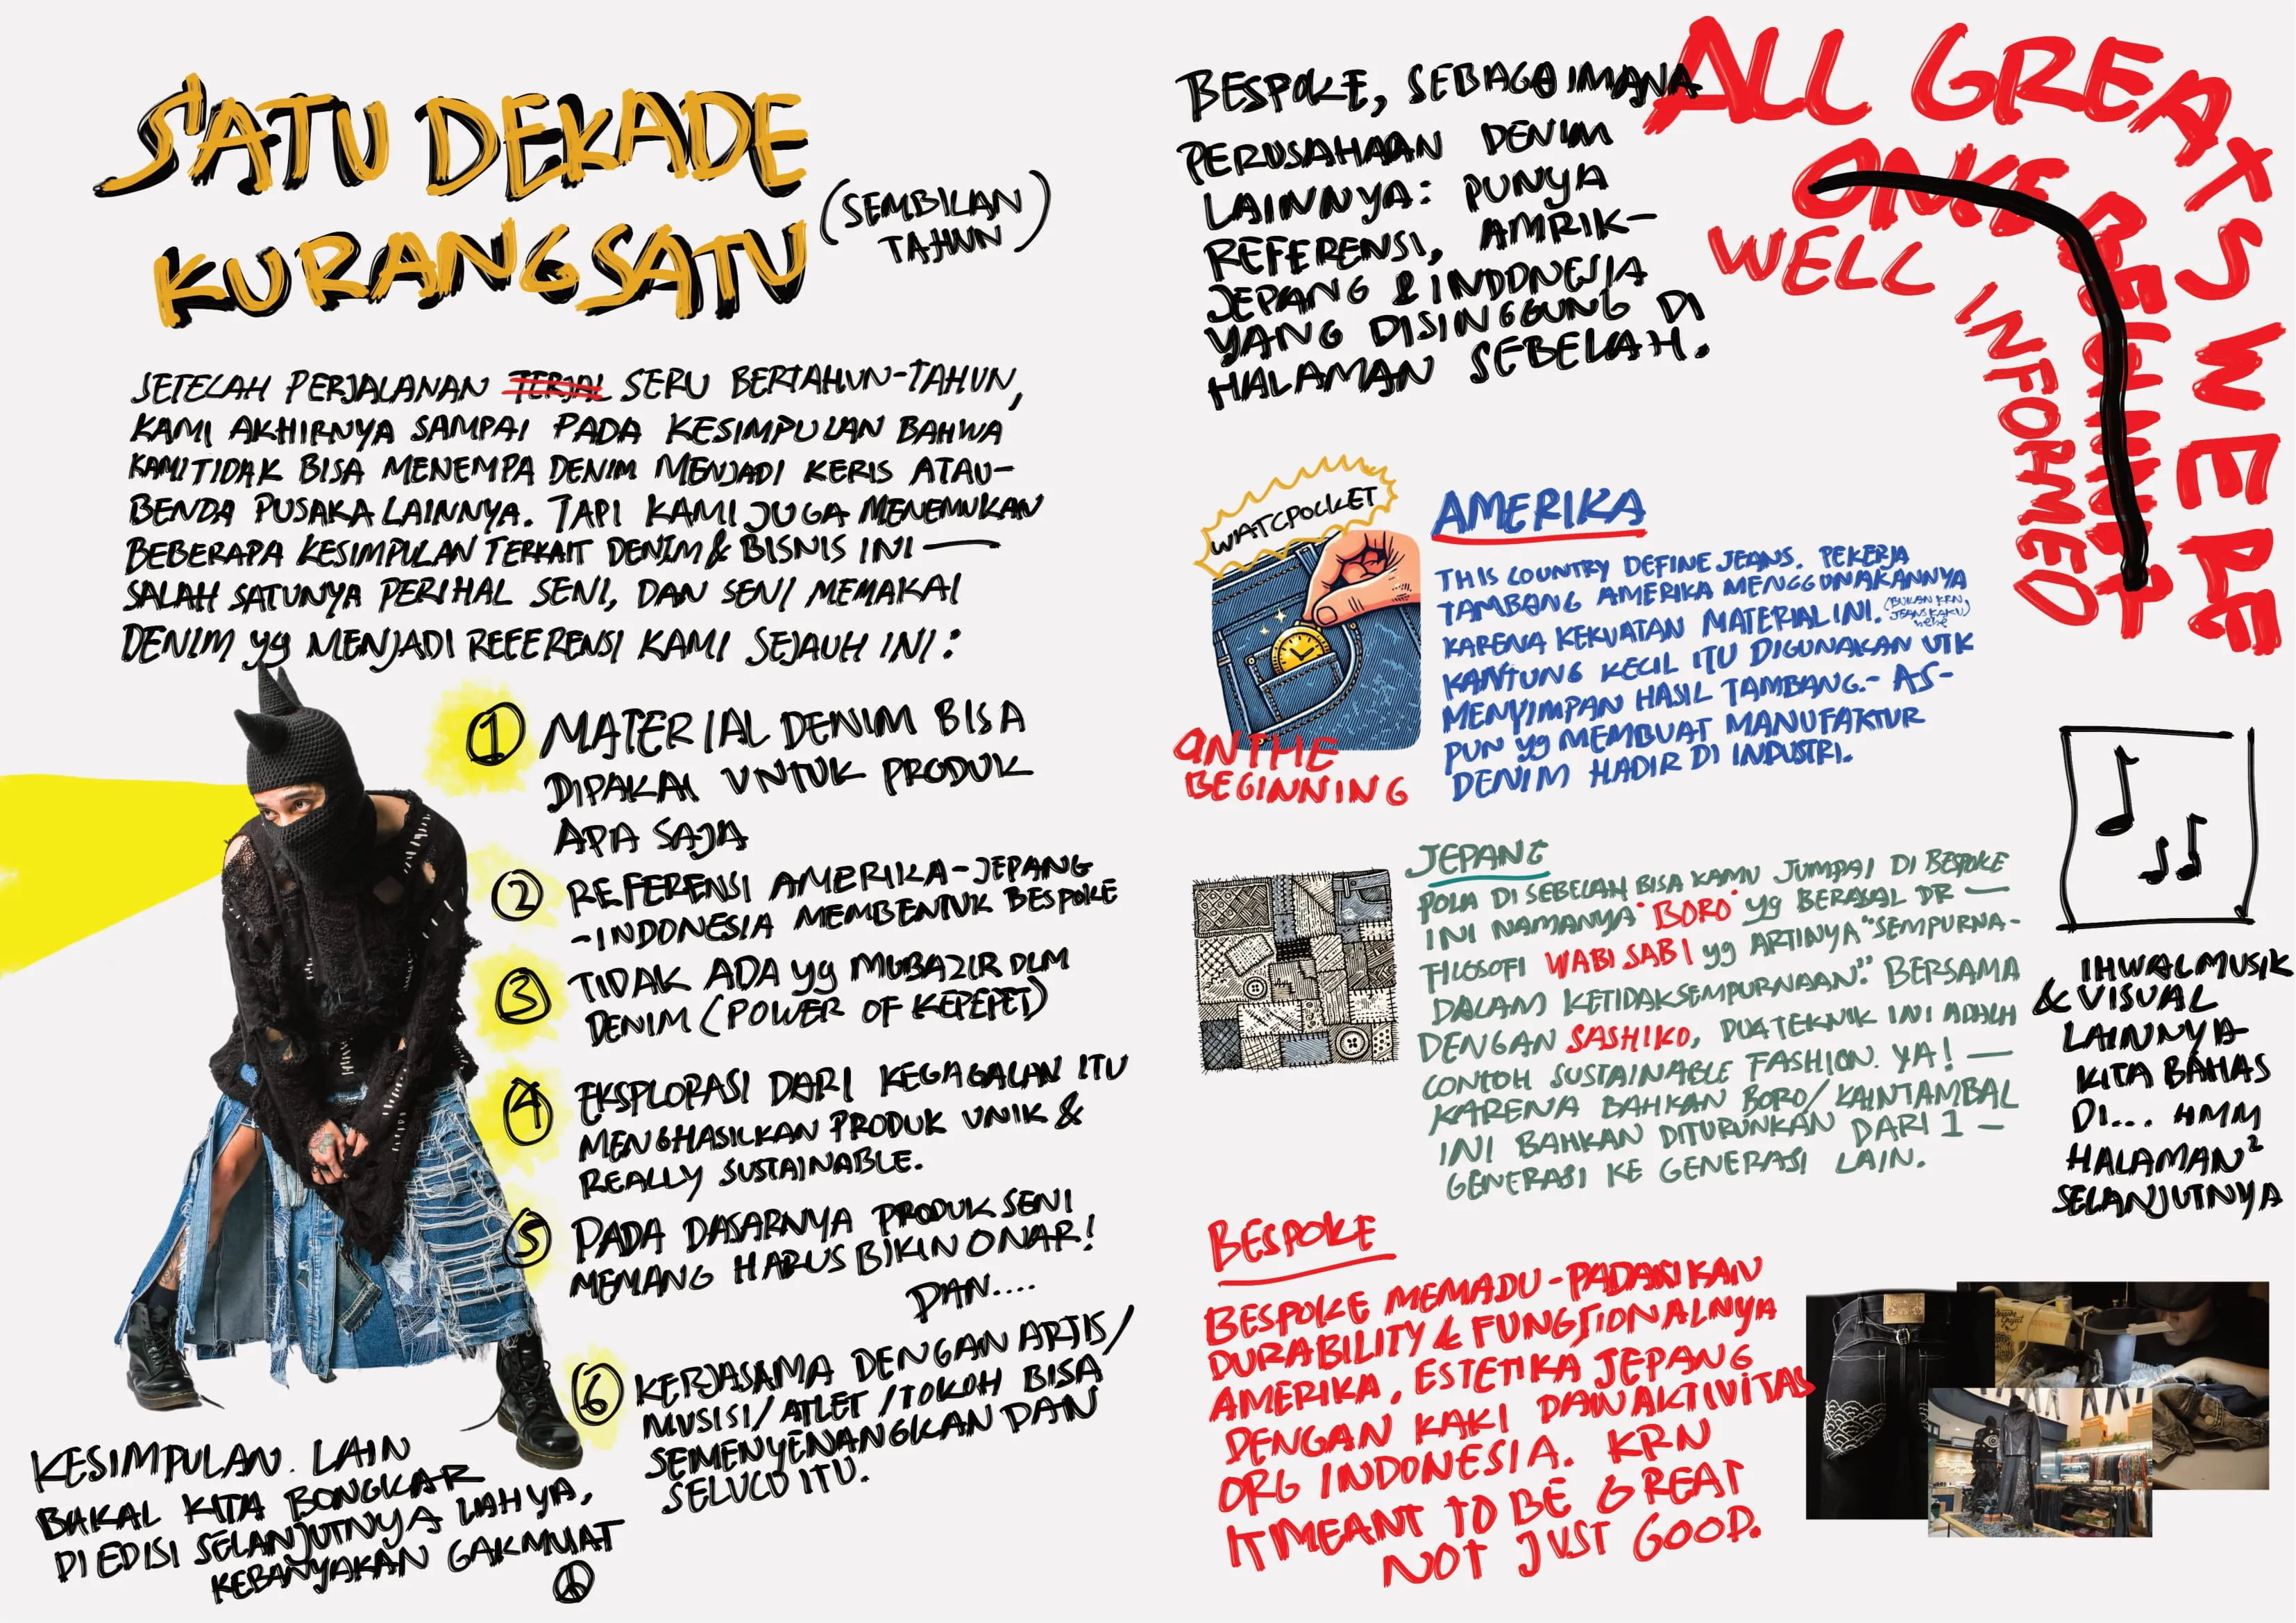 SATU DEKADE
KURANG SATU
(SEMBILAN
TAHUN)
SETELAH PERJALANAN TERJAL SERU BERTAHUN-TAHUN,
KAMI AKHIRNYA SAMPAI PADA KESIMPULAN BAHWA
KAMI TIDAK BISA MENEMPA DENIM MENJADI KERIS ATAU-
BENDA PUSAKA LAINNYA. TAPI KAMI JUGA MENEMUKAN
BEBERAPA KESIMPULAN TERKAIT DENIM & BISNIS INI —
SALAH SATUNYA PERIHAL SENI, DAN SENI MEMAKAI
DENIM yg MENJADI REFERENSI KAMI SEJAUH INI:
① MATERIAL DENIM BISA
DIPAKAI UNTUK PRODUK
APA SAJA
② REFERENSI AMERIKA-JEPANG
-INDONESIA MEMBENTUK BESPOKE
③ TIDAK ADA yg MUBAZIR DLM
DENIM (POWER OF KEPEPET)
④ EKSPLORASI DARI KEGAGALAN ITU
MENGHASILKAN PRODUK UNIK &
REALLY SUSTAINABLE.
⑤ PADA DASARNYA PRODUK SENI
MEMANG HARUS BIKIN ONAR!
DAN....
⑥ KERJASAMA DENGAN ARTIS/
MUSISI/ATLET/TOKOH BISA
SEMENYENANGKAN DAN
SELUCU ITU.
KESIMPULAN LAIN
BAKAL KITA BONGKAR
DI EDISI SELANJUTNYA YAHYA,
KEBANYAKAN GAK MUAT
BESPOKE, SEBAGAIMANA
PERUSAHAAN DENIM
LAINNYA: PUNYA
REFERENSI, AMRIK-
JEPANG & INDONESIA
YANG DISINGGUNG DI
HALAMAN SEBELAH.
ALL GREATS WERE
WELL INFORMED
WATCPOCKET
ON THE
BEGINNING
AMERIKA
THIS COUNTRY DEFINE JEANS. PEKERJA
TAMBANG AMERIKA MENGGUNAKANNYA
KARENA KEKUATAN MATERIAL INI. (BUKAN KRN
JEANS KAKU)
hehe
KANTUNG KECIL ITU DIGUNAKAN UTK
MENYIMPAN HASIL TAMBANG.- AS-
PUN yg MEMBUAT MANUFAKTUR
DENIM HADIR DI INDUSTRI.
JEPANG
POLA DI SEBELAH BISA KAMU JUMPAI DI BESPOKE
INI NAMANYA "BORO" yg BERASAL DR —
FILOSOFI WABI SABI yg ARTINYA "SEMPURNA-
DALAM KETIDAKSEMPURNAAN". BERSAMA
DENGAN SASHIKO, DUA TEKNIK INI ADALAH
CONTOH SUSTAINABLE FASHION. YA! —
KARENA BAHKAN BORO/KAIN TAMBAL
INI BAHKAN DITURUNKAN DARI 1 -
GENERASI KE GENERASI LAIN.
IHWAL MUSIK
& VISUAL
LAINNYA
KITA BAHAS
DI... HMM
HALAMAN²
SELANJUTNYA
BESPOKE
BESPOKE MEMADU-PADANKAN
DURABILITY & FUNGSIONALNYA
AMERIKA, ESTETIKA JEPANG
DENGAN KAKI DAN AKTIVITAS
ORG INDONESIA. KRN
IT MEANT TO BE GREAT
NOT JUST GOOD.